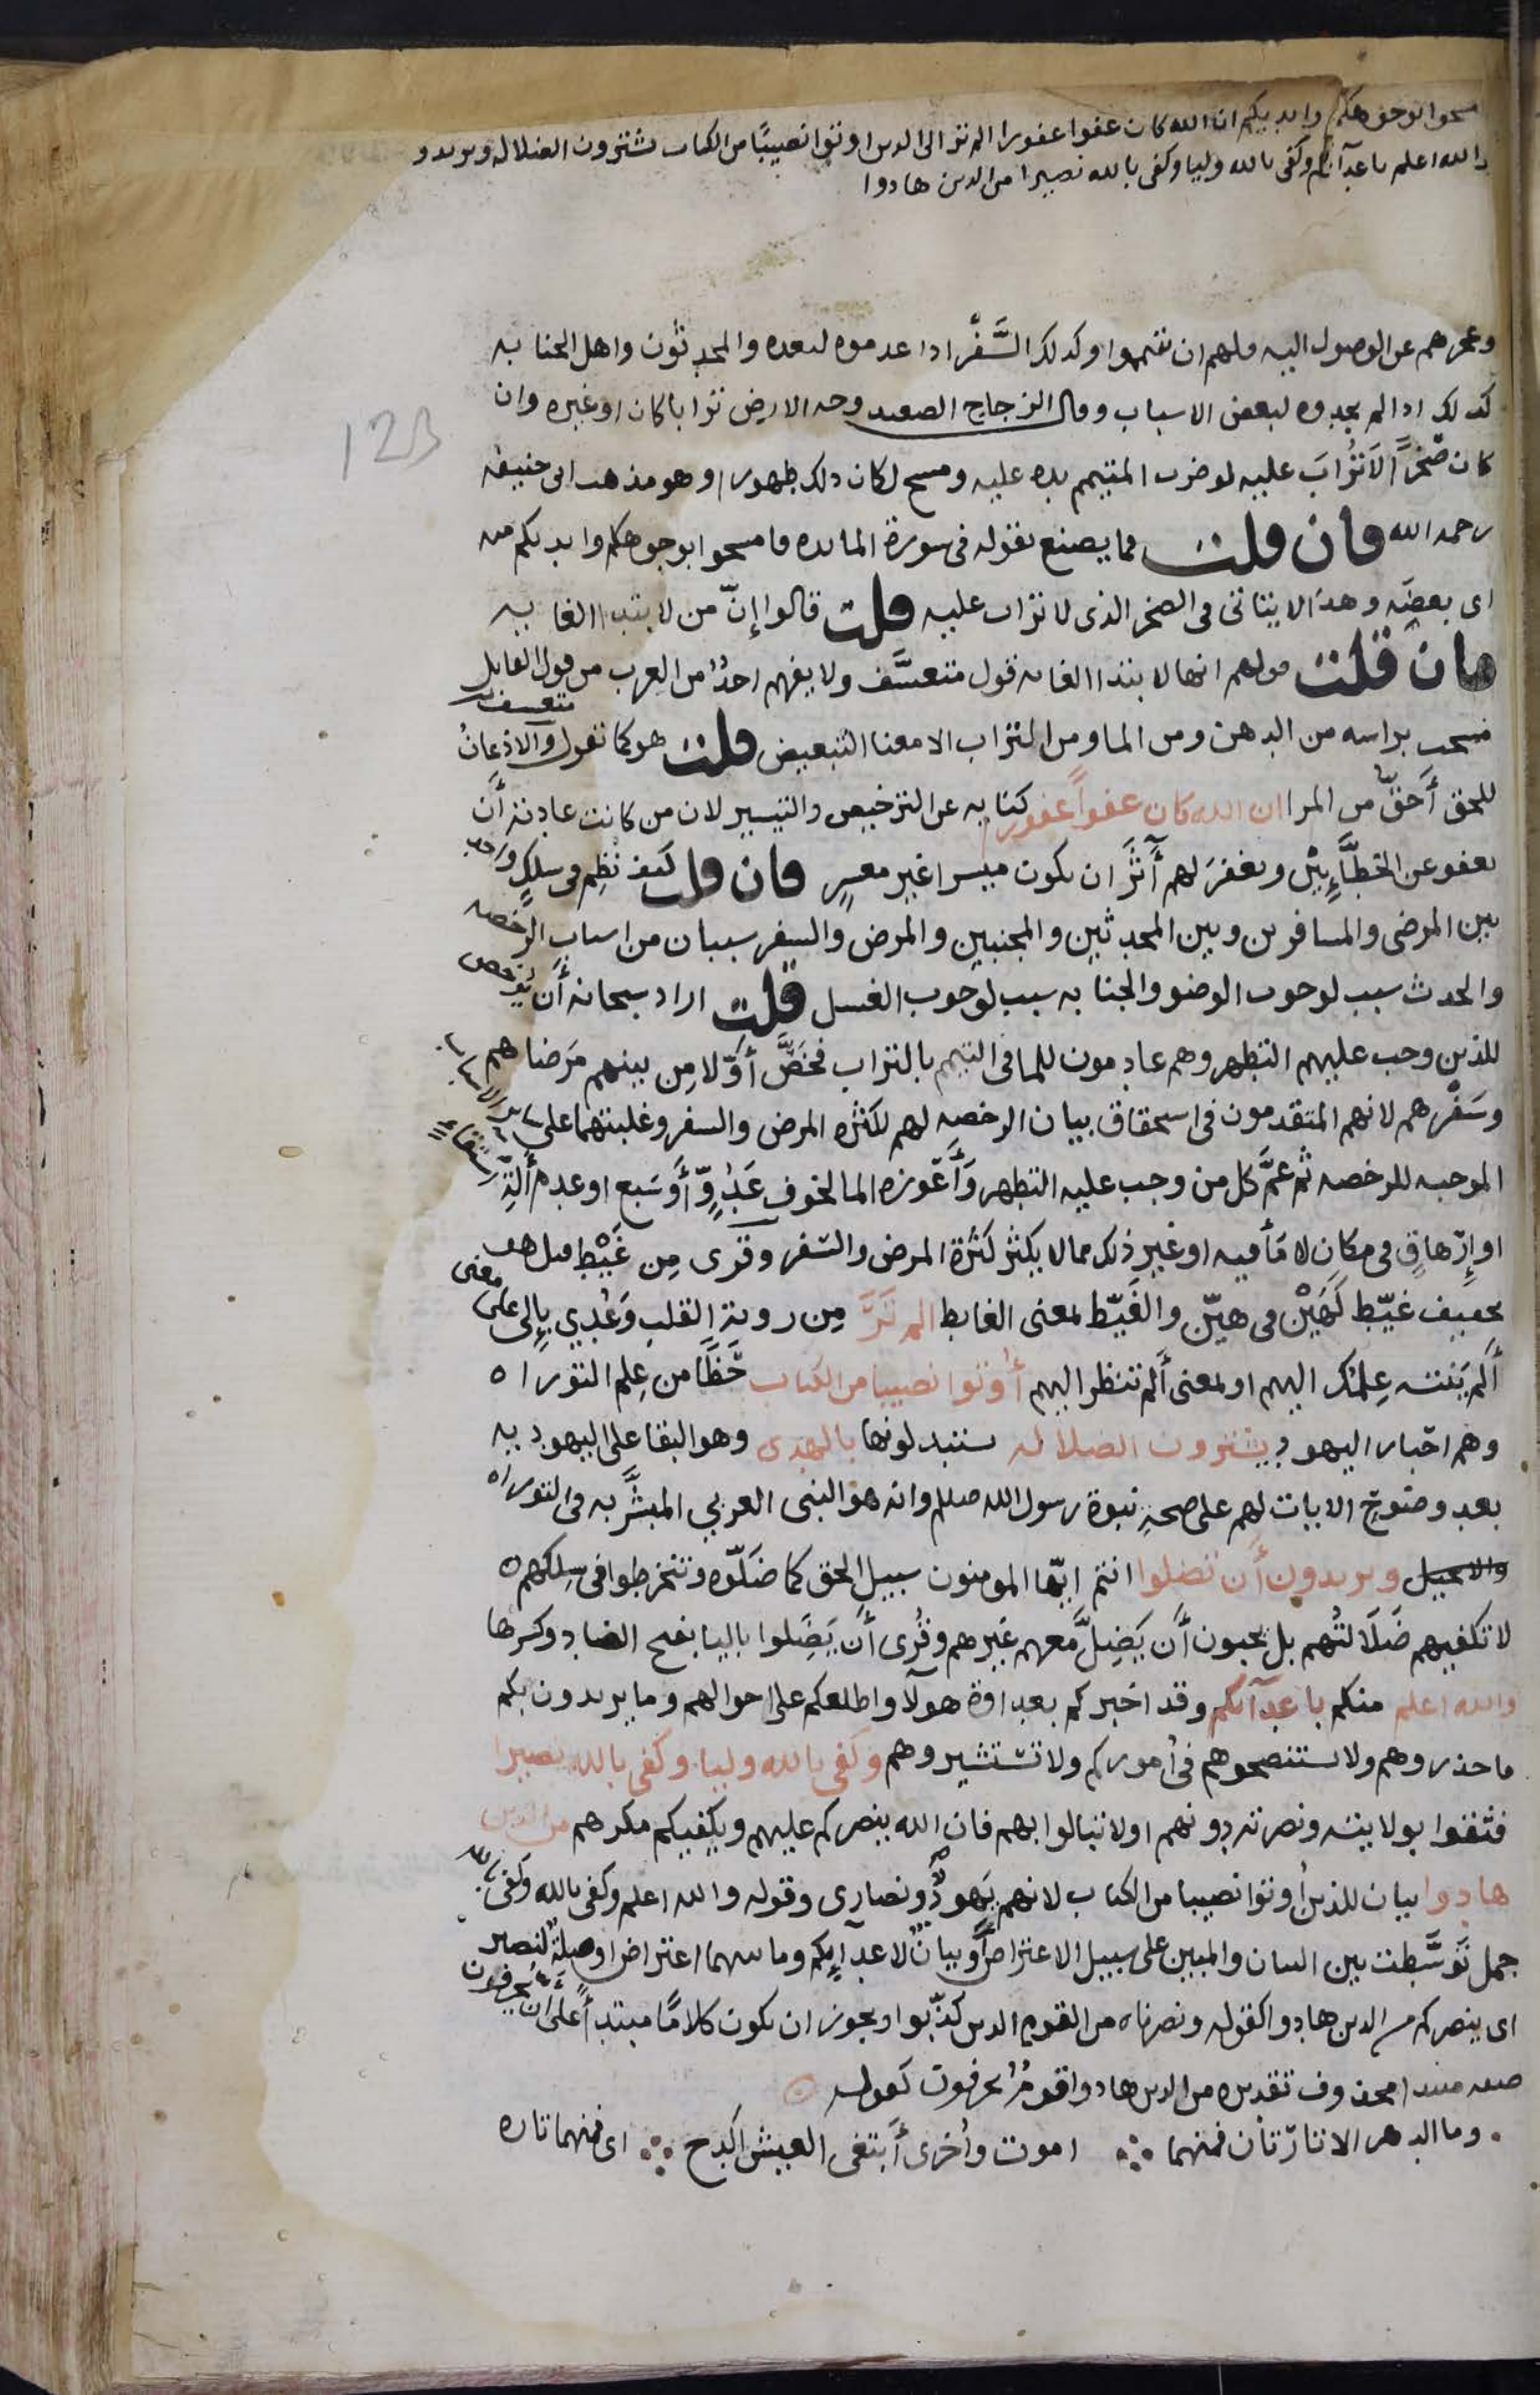 مسحوا بوجوهكم وايديكم ان الله كان عفوا غفورا الم تر الى الدين اوتوا نصيبًا من الكتاب يشترون الضلاله ويريدو
والله اعلم باعدآئكم وكفى بالله وليا وكفى بالله نصيرا من الدين هادوا
وعجزهم عن الوصول اليه فلهم ان يتيمموا وكدلك السَّفْر ادا عدموه لبعده والمحدثون واهل الجنابه
كدلك ادا لم يجدوه لبعض الاسباب وقال الزجاج الصعيد وجه الارض ترابا كان او غيره وان
كان صَخرًا لا تُرابَ عليه لو ضرب المتيمم يده عليه ومسح لكان دلك طهورا وهو مذهب ابى حنيفه
رحمه الله فان قلت فما يصنع بقوله فى سورة المايده فامسحوا بوجوهكم وايديكم منه
اى بعضِه وهذا لا يتاتى فى الصخر الذى لا تراب عليه قلت قالوا إنّ من لابتدا الغايه
فان قلت قولهم انها لابتدا الغايه قول متعسَّف ولا يفهم احدٌ من العرب من قول القايل
متعسف
مسحت براسه من الدهن ومن الما ومن التراب الا معنا التبعيض قلت هو كما تقول والاذعانُ
للحق أَحقّ من المرا ان الله كان عفواً غفورا كنايه عن الترخيص والتيسير لان من كانت عادته أَن
يعفو عن الخطَّايِيْن ويغفرَ لهم آثَرَ ان يكون ميسرا غير معسرٍ فان قلت كيف نُظِم فى سلكٍ واحد
بين المرضى والمسافرين وبين المحدثين والمجنبين والمرض والسفر سببان من اسباب الرخصه
والحدث سبب لوجوب الوضو والجنابه سبب لوجوب الغسل قلت اراد سبحانه أَن يُرخص
للذين وجب عليهم التطهر وهم عادمون للما فى التيمم بالتراب فخَصَّ أوّلا مِن بينهم مَرضاهم
وسَفْرهم لانهم المتقدمون فى استحقاق بيان الرخصه لهم لكثره المرض والسفر وغلبتهما على ساير الاسباب
الموجبه للرخصه ثم عَمَّ كل من وجب عليه التطهر وَأَعوزه الما لخوف عَدُوٍّ أَو سَبع او عدم أَلةِ استقاء
او إِرْهاقٍ فى مكان لا مَأ فيه او غير ذلك مما لا يكثر كَثرةَ المرض والسفر وقرى مِن غَيْطٍ قيل هو
تخفيف غيّط كَهَيْنٍ فى هيّن والغَيّط بمعنى الغايط الم تَرَ مِن رويةِ القلب وَعُدِي بإِلى على معنى
أَلم يَنته عِلمُك اليهم او بمعنى أَلم تنظر اليهم أُوتوا نصيبا من الكتاب حَظًّا من عِلم التوراه
وهم احبار اليهود يشترون الضلاله يستبدلونها بالهدى وهو البقا على اليهوديه
بعد وضوحِ الايات لهم على صحةِ نبوة رسول الله صلعم وانه هو النبى العربي المبشَّر به فى التوراه
والانجيل ويريدون أَن تضلوا انتم ايّها المومنون سبيل الحق كما ضَلّوه وتنخرطوا فى سلكهم
لا تكفيهم ضَلَالتُهم بل يحبون أَن يَضِلَّ معهم غيرهم وقُرِى أَن يَضَِلوا باليا بفتح الضاد وكسرها
والله اعلم منكم باعدآئكم وقد اخبركم بعداوة هولآ واطلعكم على احوالهم وما يريدون بكم
فاحذروهم ولا تستنصحوهم فى أموركم ولا تستشيروهم وكفى بالله وليا وكفى بالله نصيرا
فثقوا بولايته ونصرته دونهم او لا تبالوا بهم فان الله ينصركم عليهم ويكفيكم مكرهم من الدين
هادوا بيان للذين اُوتوا نصيبا من الكتاب لانهم يَهودٌ ونصارى وقوله والله اعلم وكفى بالله وكفى بالله
جمل تَوسَّطت بين البيان والمبين على سبيل الاعتراض أَو بيانٌ لاعدآيِكم وما بينهما اعتراض او صِلةٌ لنصير
اى ينصركم من الدين هادوا كقوله ونصرناه من القوم الدين كذّبوا ويجوز ان يكون كلامًا مبتدأ على أَن يحرفون
صفه مبتدا محذوف تقديره من الدين هادوا قومٌ يحرفون كقوله
وما الدهر الا تارتان فمنهما ∴ اموت وأخرى أَبتغى العيش اكدح ∴ اى فمنهما تاره
128